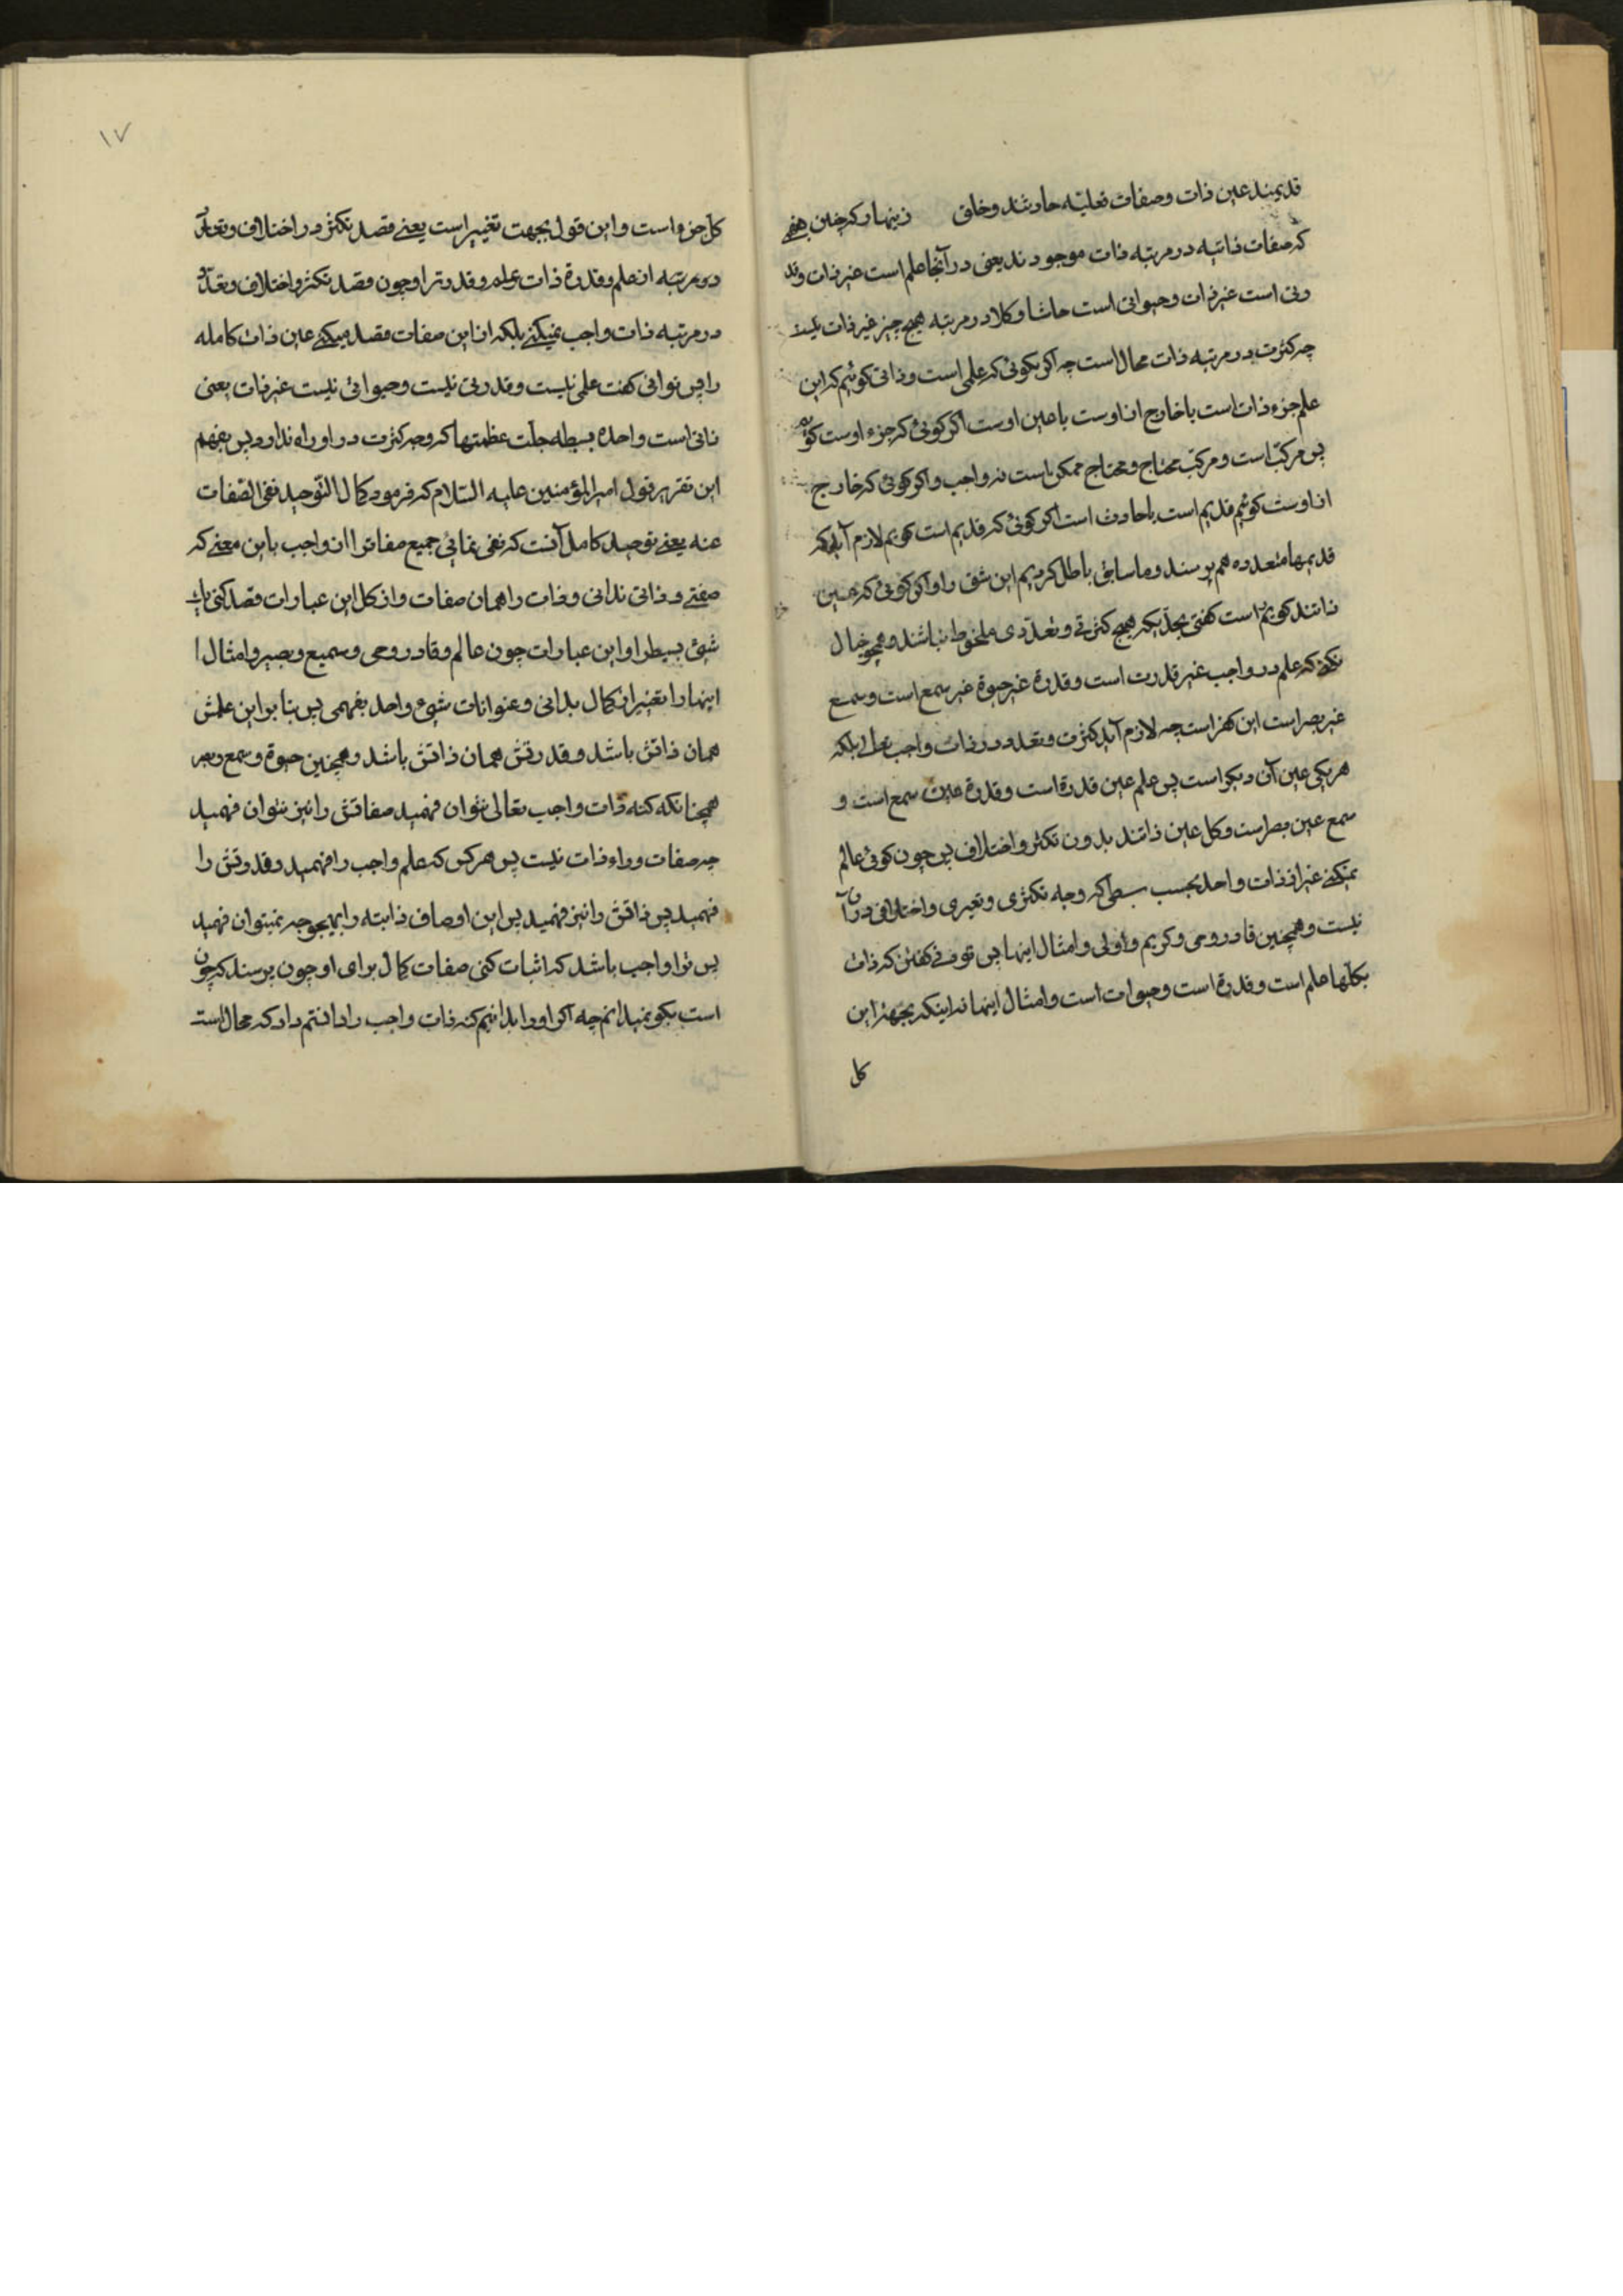 قدیمند عین ذات وصفات فعلیّه حادثند وخلق زینهار که چنین فهمی
که صفات ذاتیّه در مرتبه ذات موجودند یعنی در آنجا علم است غیر ذات وقد
رتی است غیر ذات وحیواتی است حاشا وکلا در مرتبه هیچ چیز غیر ذات نیست
چه کثرت در مرتبه ذات محال است چه اکر بکوئی که علمی است وذاتی کوئیم که این
علم جزء ذات است یا خارج از اوست یا عین اوست اکر کوئی که جزء اوست کوئیم
پس مرکّب است ومرکّب محتاج ومحتاج ممکن است نه واجب واکر کوئی که خارج
از اوست کوئیم قدیم است یا حادث است اکر کوئی که قدیم است کویم لازم آید که
قدیمها متعدده هم پرسند وما سابق باطل کردیم این شق را واکر کوئی که عین
ذاتند کویم است کفتی بحدّیکه هیچ کثرتی وتعدّدی ملحوظ نباشند وهمچو خیال
نکنی که علم در واجب غیر قدرت است وقدرة غیر حیوة غیر سمع است وسمع
غیر بصر است این کفر است چه لازم آید کثرت وتعدد در ذات واجب تعالی بلکه
هر یکی عین آن دیکر است پس علم عین قدرة است وقدرة عین سمع است و
سمع عین بصر است وکل عین ذاتند بدون تکثر واختلاف پس چون کوئی عالم
نمیکنی غیر از ذات واحد بحسب بسطی که وجه تکثری وتغیری واختلافی در آن
نیست وهمچنین قادر وحی وکریم واولی وامثال اینها پس توفی کفتن که ذات
بکلّها علم است وقدرة است وحیوات است وامثال اینها نه اینکه بجهة این
کل
١٧
کل جزو است واین قول بجهت تغییر است یعنی قصد تکثر در اختلاف وتعدّد
در مرتبه از علم وقدرة ذات وعلم وقدرتر او چون قصد تکثر واختلاف وتعدّد
در مرتبه ذات واجب نمیکنی بلکه از این صفات قصد میکنی عین ذات کامله
را پس توانی کفت علمی نیست وقدرتی نیست وحیواتی نیست غیر ذات یعنی
ذاتی است واحده بسیطه جلّت عظمتها که وجه کثرت در او راه ندارد پس بفهم
این تقریر قول امیر المؤمنین علیه السّلام که فرمود کمال التّوحید نفی الصّفات
عنه یعنی توحید کامل آنست که نفی نمائی جمیع صفاترا از واجب باین معنی که
صفتی وذاتی ندانی وذات را همان صفات واز کل این عبارات قصد کنی یک
شیئ بسیطرا واین عبارات چون عالم وقادر وحی وسمیع وبصیر وامثال
اینها را تغییر از کمال بدانی وعنوانات شیء واحد بفهمی پس بنابر این علمش
همان ذاتش باشد وقدرتش همان ذاتش باشد وهمچنین حیوة وسمع وبصر
همچنانکه کنه ذات واجب تعالی نتوان فهمید صفاتش را نیز نتوان فهمید
چه صفات وراء ذات نیست پس هر کس که علم واجب را فهمید وقدرتش را
فهمید پس ذاتش را نیز فهمید پس این اوصاف ذاتیّه را بهیچوجه نمیتوان فهمید
پس ترا واجب باشد که اثبات کنی صفات کمال برای او چون پرسند که چون
است بکو نمیدانم چه اکر او را بدانیم کنه ذات واجب را دانستم داد که محال است